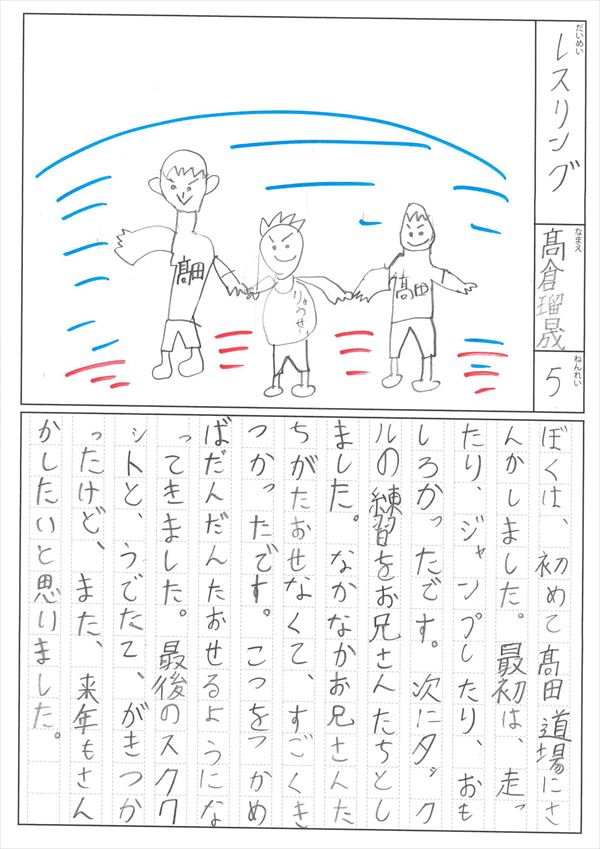 だいめい
レスリング
なまえ
髙倉瑠晟
ねんれい
5
髙田
りゅうせい
髙田
ぼくは、初めて髙田道場にさ
んかしました。最初は、走っ
たり、ジャンプしたり、おも
しろかったです。次にタック
ルの練習をお兄さんたちとし
ました。なかなかお兄さんた
ちがたおせなくて、すごくき
つかったです。こつをつかめ
ばだんだんたおせるようにな
ってきました。最後のスクワ
ットと、うでたて、がきつか
ったけど、また、来年もさん
かしたいと思いました。